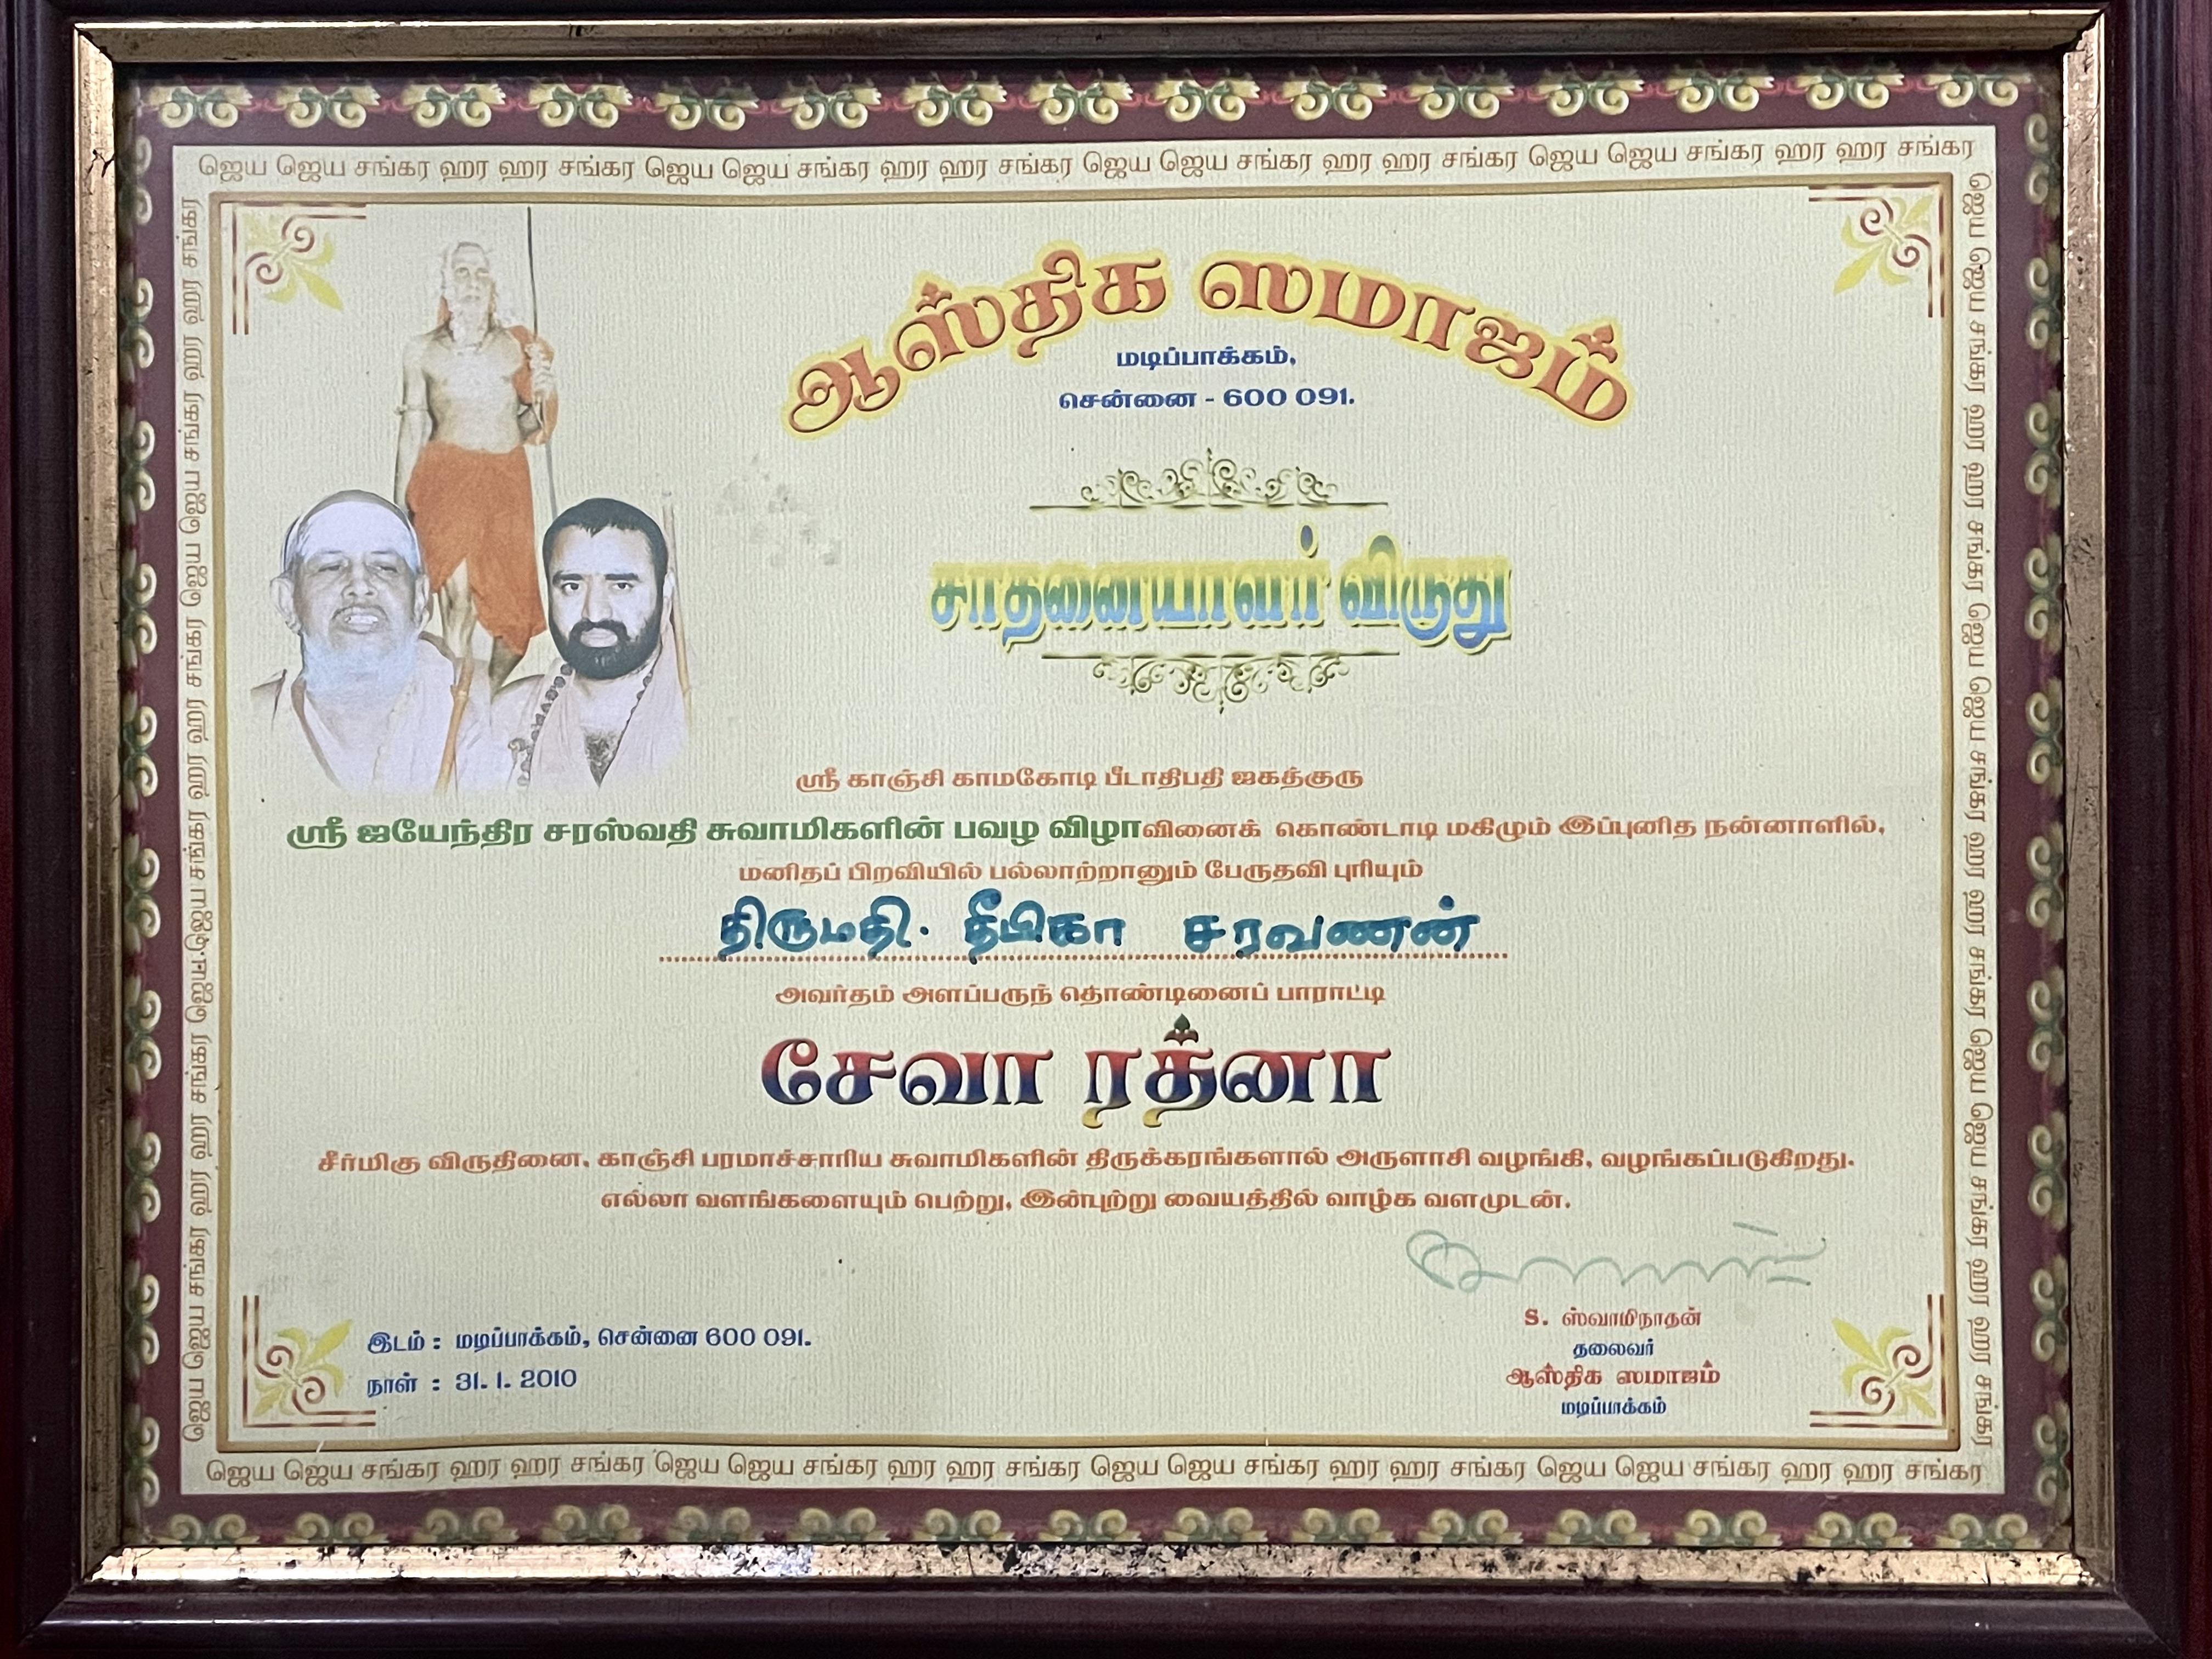 ஜெய ஜெய சங்கர ஹர ஹர சங்கர ஜெய ஜெய சங்கர ஹர ஹர சங்கர ஜெய ஜெய சங்கர ஹர ஹர சங்கர ஜெய ஜெய சங்கர ஹர ஹர சங்கர
ஆஸ்திக ஸமாஜம்
மடிப்பாக்கம்,
சென்னை - 600 091.
சாதனையாளர் விருது
ஸ்ரீ காஞ்சி காமகோடி பீடாதிபதி ஜகத்குரு
ஸ்ரீ ஜயேந்திர சரஸ்வதி சுவாமிகளின் பவழ விழாவினைக் கொண்டாடி மகிழும் இப்புனித நன்னாளில்,
மனிதப் பிறவியில் பல்லாற்றானும் பேருதவி புரியும்
திருமதி. தீபிகா சரவணன்
அவர்தம் அளப்பருந் தொண்டினைப் பாராட்டி
சேவா ரத்னா
சீர்மிகு விருதினை, காஞ்சி பரமாச்சாரிய சுவாமிகளின் திருக்கரங்களால் அருளாசி வழங்கி, வழங்கப்படுகிறது.
எல்லா வளங்களையும் பெற்று, இன்புற்று வையத்தில் வாழ்க வளமுடன்.
இடம் : மடிப்பாக்கம், சென்னை 600 091.
நாள் : 31. 1. 2010
S. ஸ்வாமிநாதன்
தலைவர்
ஆஸ்திக ஸமாஜம்
மடிப்பாக்கம்
ஜெய ஜெய சங்கர ஹர ஹர சங்கர ஜெய ஜெய சங்கர ஹர ஹர சங்கர ஜெய ஜெய சங்கர ஹர ஹர சங்கர ஜெய ஜெய சங்கர ஹர ஹர சங்கர
ஜெய ஜெய சங்கர ஹர ஹர சங்கர ஜெய ஜெய சங்கர ஹர ஹர சங்கர ஜெய ஜெய சங்கர ஹர ஹர சங்கர
ஜெய ஜெய சங்கர ஹர ஹர சங்கர ஜெய ஜெய சங்கர ஹர ஹர சங்கர ஜெய ஜெய சங்கர ஹர ஹர சங்கர